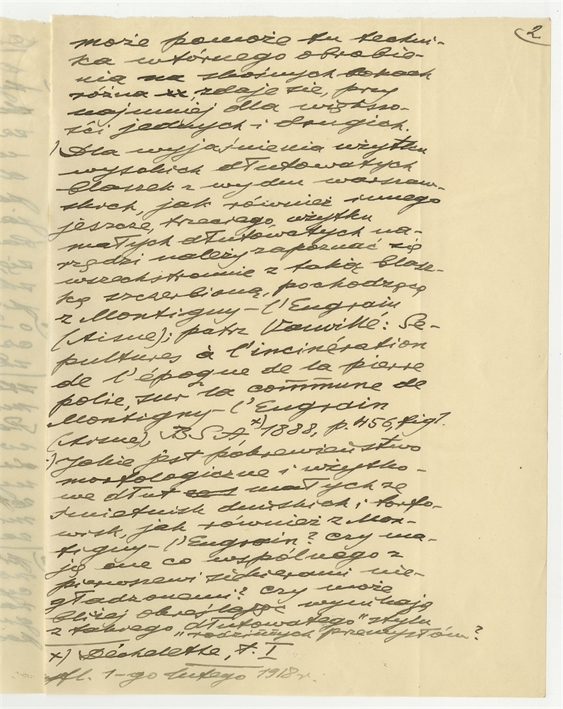 2
może pomoże tu techni-
ka wtórnego obrobie-
nia na skośnych bokach
różna, zdaje się, przy
najmniej dla większo-
ści jednych i drugich.
Dla wyjaśnienia użytku
wysokich dłutowatych
blaszek z wydm warszaw-
skich, jak również innego
jeszcze, trzeciego użytku
małych dłutowatych na-
rzędzi należy zapoznać się
wszechstronnie z taką blasz-
ką szczerbioną, pochodzącą
z Montigny-l'Engrain
(Aisne); patrz Vauvillé: Sé-
pultures à l'incinération
de l'époque de la pierre
polie, sur la commune de
Montigny-l'Engrain
(Aisne), BSA x) 1888, p. 456, fig 1.
Jakie jest pokrewieństwo
morfologiczne i użytko-
we dłut małych ze
śmietnisk duńskich i torfo-
wisk, jak również z Mon-
tigny-l'Engrain? czy ma-
ją one co wspólnego z
pierwszemi siekierami nie-
gładzonemi? czy może
bliżej określając wynikają
z takiego „dłutowatego" stylu
„rodzimych przemysłów?
x) Déchelette, t. I
1-go lutego 1918 r.